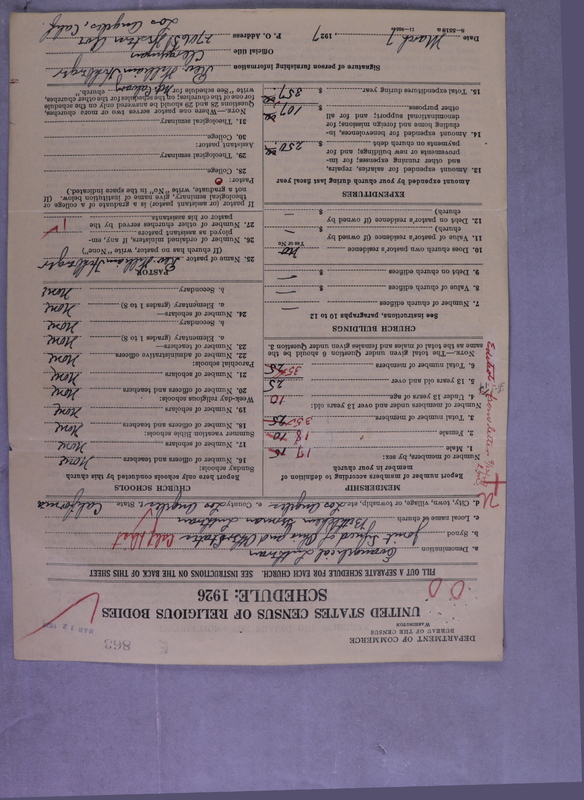 DEPARTMENT OF COMMERCE
BUREAU OF THE CENSUS
WASHINGTON
863
UNITED STATES CENSUS OF RELIGIOUS BODIES
SCHEDULE: 1926
FILL OUT A SEPARATE SCHEDULE FOR EACH CHURCH. SEE INSTRUCTIONS ON THE BACK OF THIS SHEET
a. Denomination Evangelical Lutheran
b. Synod Joint Synod of Ohio and Other States
c. Local name of church Bethlehem German Lutheran
d. City, town, village, or township, etc. Los Angeles e. County Los Angeles f. State California
MEMBERSHIP
Report number of members according to definition of member in your church
Number of members, by sex:
1. Male 17 15
2. Female 18 10
3. Total number of members 35 25
Number of members under and over 13 years old:
4. Under 13 years of age 10
5. 13 years old and over 25
6. Total number of members 35 25
NOTE.—The total given under Question 6 should be the same as the total of males and females given under Question 3.
CHURCH BUILDINGS
See instructions, paragraphs 10 to 12
7. Number of church edifices —
8. Value of church edifices $ —
9. Debt on church edifices $ —
10. Does church own pastor's residence no
Yes or No
11. Value of pastor's residence (if owned by church) $ —
12. Debt on pastor's residence (if owned by church) $ —
EXPENDITURES
Amount expended by your church during last fiscal year
13. Amount expended for salaries, repairs, and other running expenses; for improvements or new buildings; and for payments on church debt $ 250
14. Amount expended for benevolences, including home and foreign missions; for denominational support; and for all other purposes $ 107
15. Total expenditures during year $ 357
CHURCH SCHOOLS
Report here only schools conducted by this church
Sunday schools:
16. Number of officers and teachers None
17. Number of scholars None
Summer vacation Bible schools:
18. Number of officers and teachers None
19. Number of scholars None
Week-day religious schools:
20. Number of officers and teachers None
21. Number of scholars None
Parochial schools:
22. Number of administrative officers None
23. Number of teachers—
a. Elementary (grades 1 to 8) None
b. Secondary None
24. Number of scholars—
a. Elementary (grades 1 to 8) None
b. Secondary None
PASTOR
25. Name of pastor Rev. William
(If church has no pastor, write "None")
26. Number of ordained ministers, if any, employed as assistant pastors
27. Number of other churches served by the pastor or his assistants 1
If pastor (or assistant pastor) is a graduate of a college or theological seminary, give name of institution below. (If not a graduate, write "No" in the space indicated.)
Pastor:
28. College
29. Theological seminary
Assistant pastor:
30. College
31. Theological seminary
NOTE.—Where one pastor serves two or more churches, Questions 28 and 29 should be answered only on the schedule for one of the churches; on the schedules for the other churches, write "See schedule for church."
Signature of person furnishing information Rev. William
Official title Clergyman
P. O. Address
Los Angeles, Calif.
Date March 7, 1927